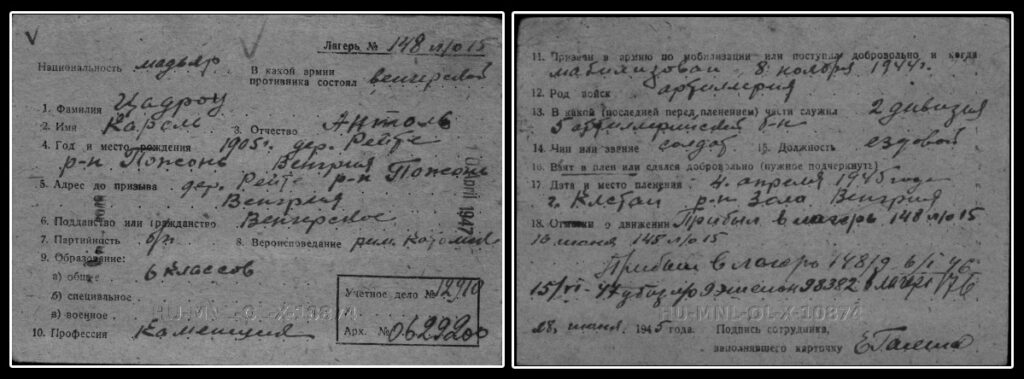 Лагерь № 148 л/о 15
Национальность мадьяр
В какой армии противника состоял венгерской
1. Фамилия Цадроц
2. Имя Карель 3. Отчество Антоль
4. Год и место рождения 1905 г. дер. Рейте
р-н Пожонь Венгрия
5. Адрес до призыва дер. Рейте р-н Пожонь
Венгрия
6. Подданство или гражданство Венгерское
7. Партийность б/п 8. Вероисповедание рим. католик
9. Образование:
а) общее 6 классов
б) специальное
в) военное
10. Профессия
Учетное дело № 12910
Арх. № 0629200
1 April 1947
11. Призван в армию по мобилизации или поступил добровольно и когда
мобилизован 8 ноября 1944 г.
12. Род войск артиллерия
13. В какой (последней перед пленением) части служил 2 дивизия
5 артиллерийский
14. Чин или звание солдат 15. Должность ездовой
16. Взят в плен или сдался добровольно (нужное подчеркнуть)
17. Дата и место пленения 4. апреля 1945 года
г. р-н Зала Венгрия
18. Отметки о движении Прибыл в лагерь 148 л/о 15
16 июня 148 л/о 15
Прибыл в лагерь 148/9 6/I 46
15/VI 47 убыл эшелон 98382 в лагерь 176
HU-MNL-OL-X-10801-4748
28. июня. 1945 года. Подпись сотрудника,
заполнявшего карточку